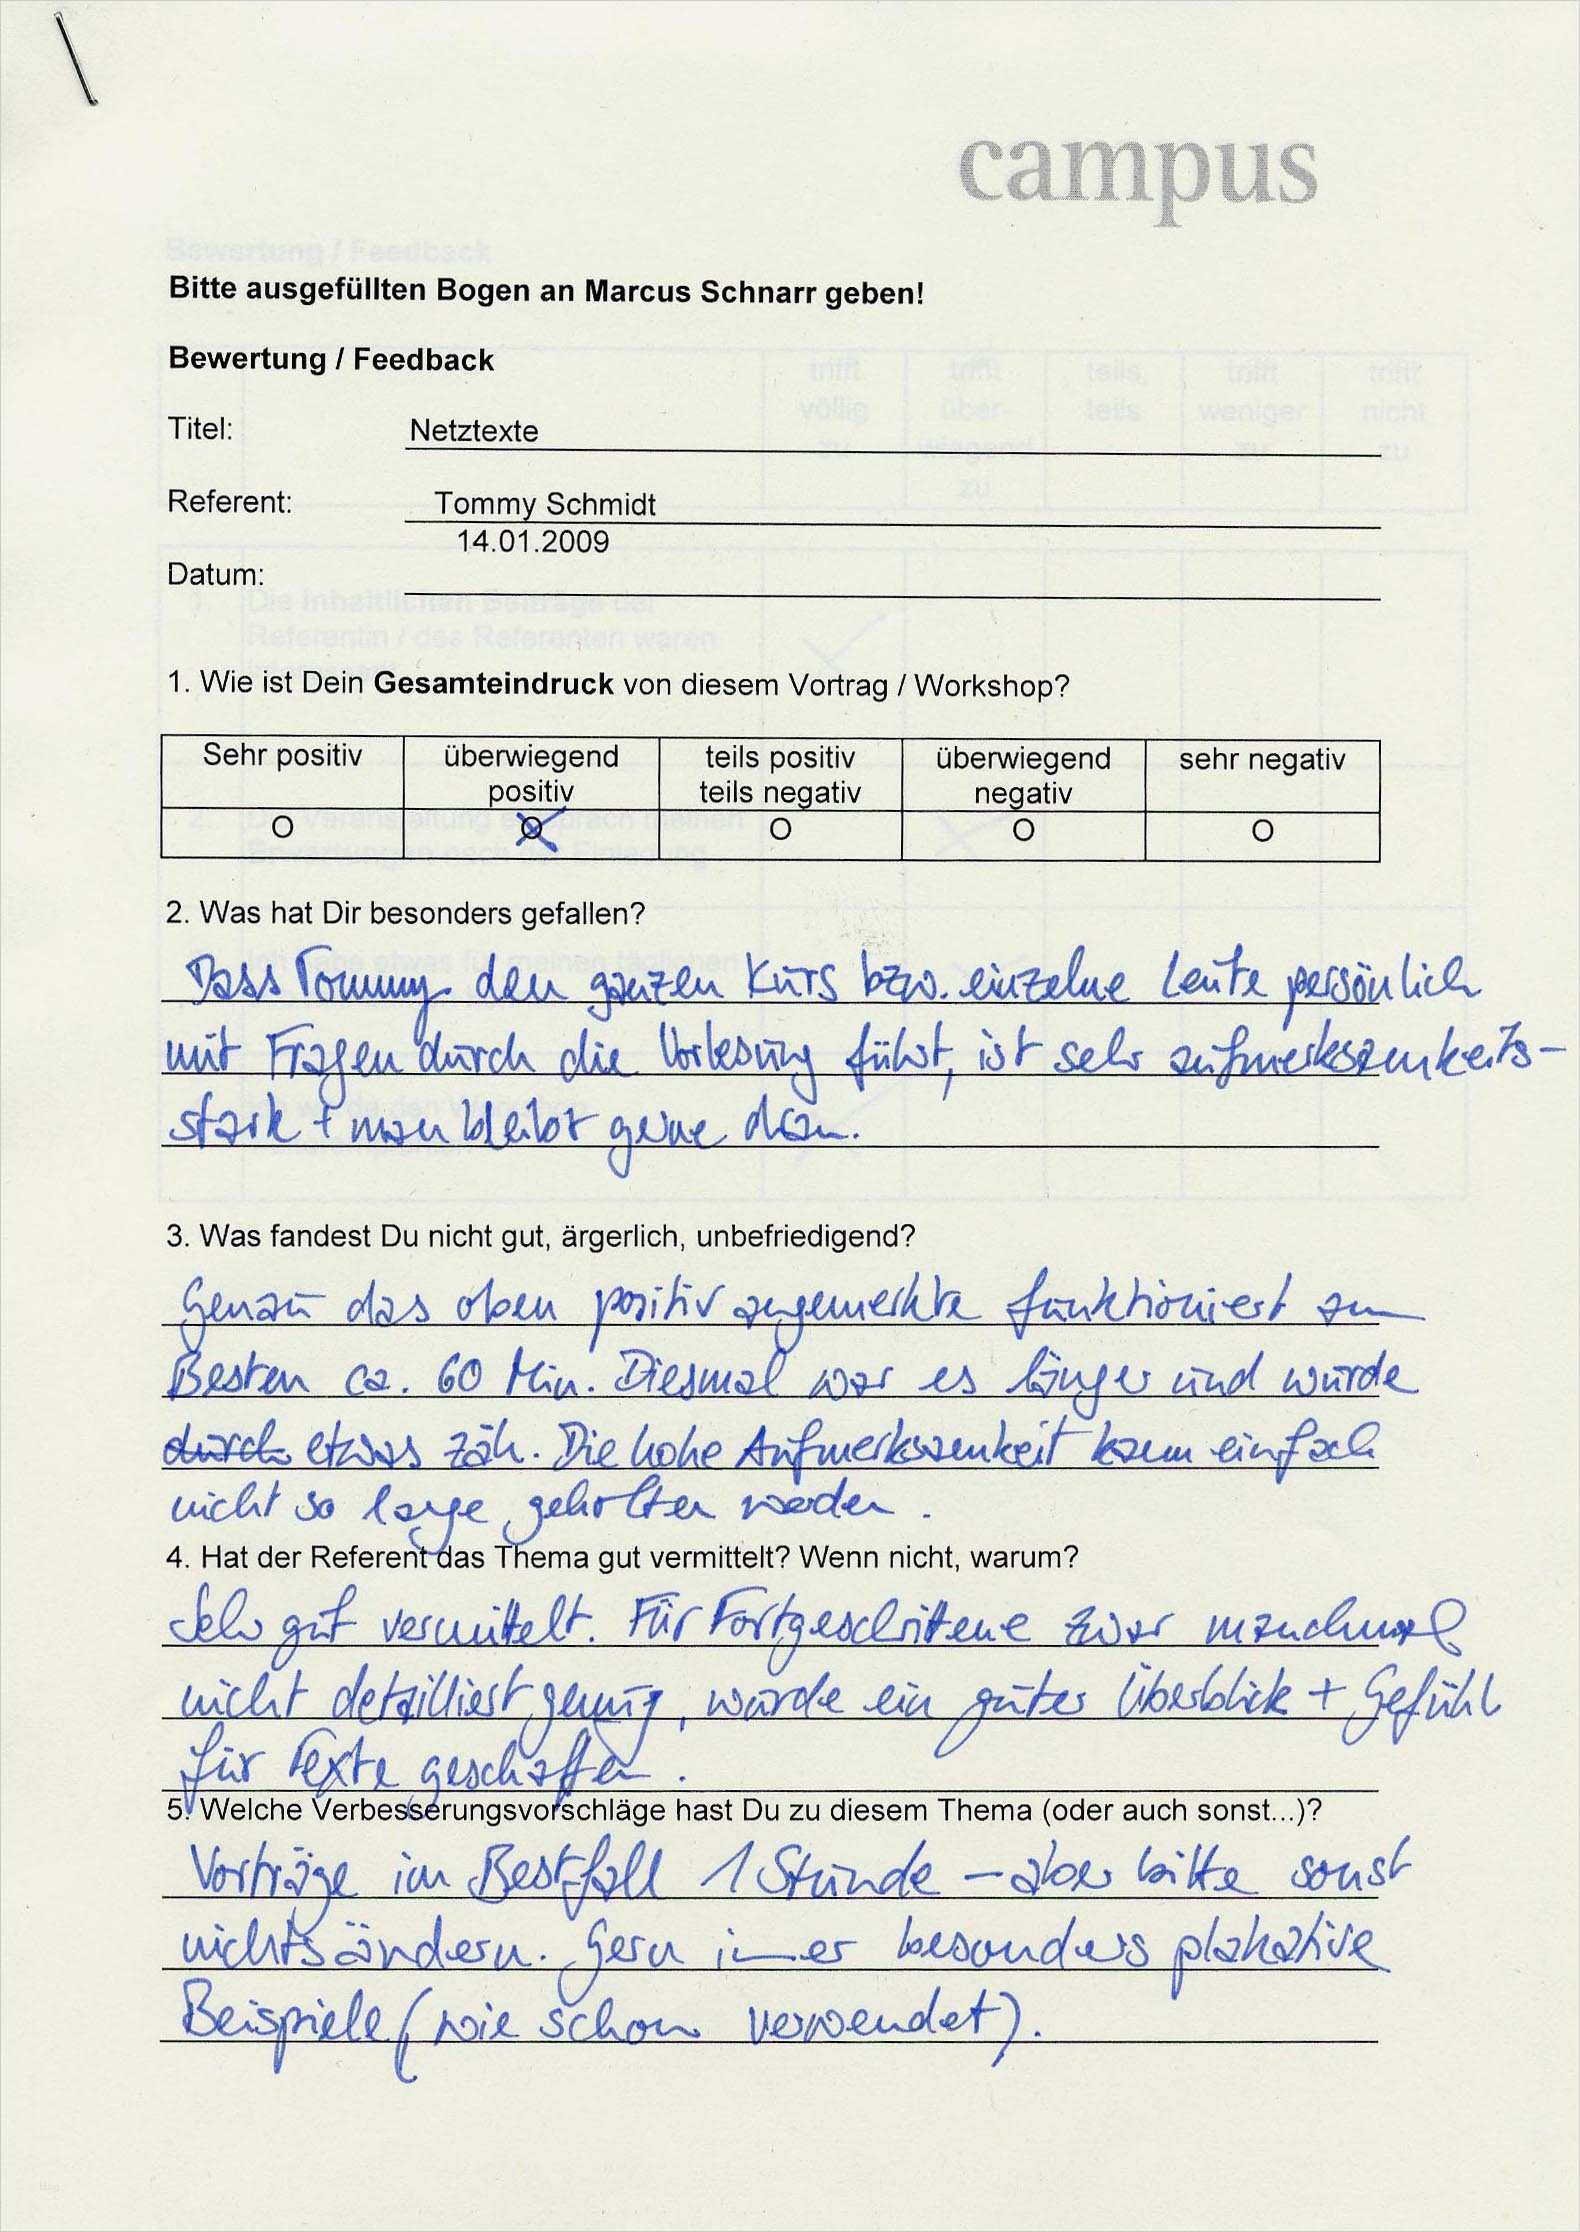 campus
Bitte ausgefüllten Bogen an Marcus Schnarr geben!
Bewertung / Feedback
Titel: Netztexte
Referent: Tommy Schmidt
14.01.2009
Datum:
1. Wie ist Dein Gesamteindruck von diesem Vortrag / Workshop?
Sehr positiv überwiegend positiv teils positiv teils negativ überwiegend negativ sehr negativ
O O O O O
2. Was hat Dir besonders gefallen?
Dass Tommy den ganzen Kurs bzw. einzelne Leute persönlich
mit Fragen durch die Vorlesung führt, ist sehr aufmerksamkeits-
stark + man bleibt gerne dran.
3. Was fandest Du nicht gut, ärgerlich, unbefriedigend?
Genau das oben positiv angemerkte funktioniert am
Besten ca. 60 Min. Diesmal war es länger und wurde
durch etwas zäh. Die hohe Aufmerksamkeit kann einfach
nicht so lange gehalten werden.
4. Hat der Referent das Thema gut vermittelt? Wenn nicht, warum?
Sehr gut vermittelt. Für Fortgeschrittene zwar manchmal
nicht detailliert genug, wurde ein guter Überblick + Gefühl
für Texte geschaffen.
5. Welche Verbesserungsvorschläge hast Du zu diesem Thema (oder auch sonst...)?
Vorträge im Bestfall 1 Stunde – aber bitte sonst
nichts ändern. Gern immer besonders plakative
Beispiele (wie schon verwendet).